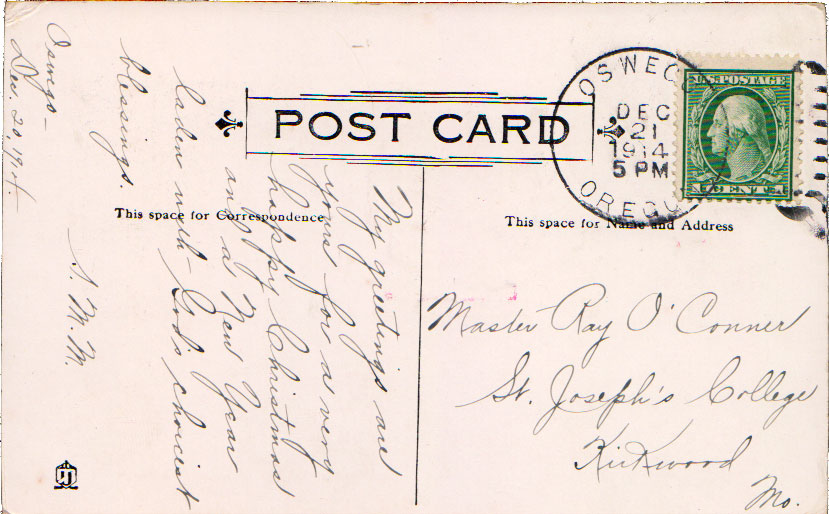 POST CARD
This space for Correspondence
This space for Name and Address
OSWEGO
DEC
21
1914
5 PM
OREGON
U.S. POSTAGE
Oswego –
Dec. 20, 1914.
My greetings are
yours for a very
happy Christmas
and a New Year
laden with God's choicest
blessings.
S. M. M.
Master Ray O'Conner
St. Joseph's College
Kirkwood
Mo.